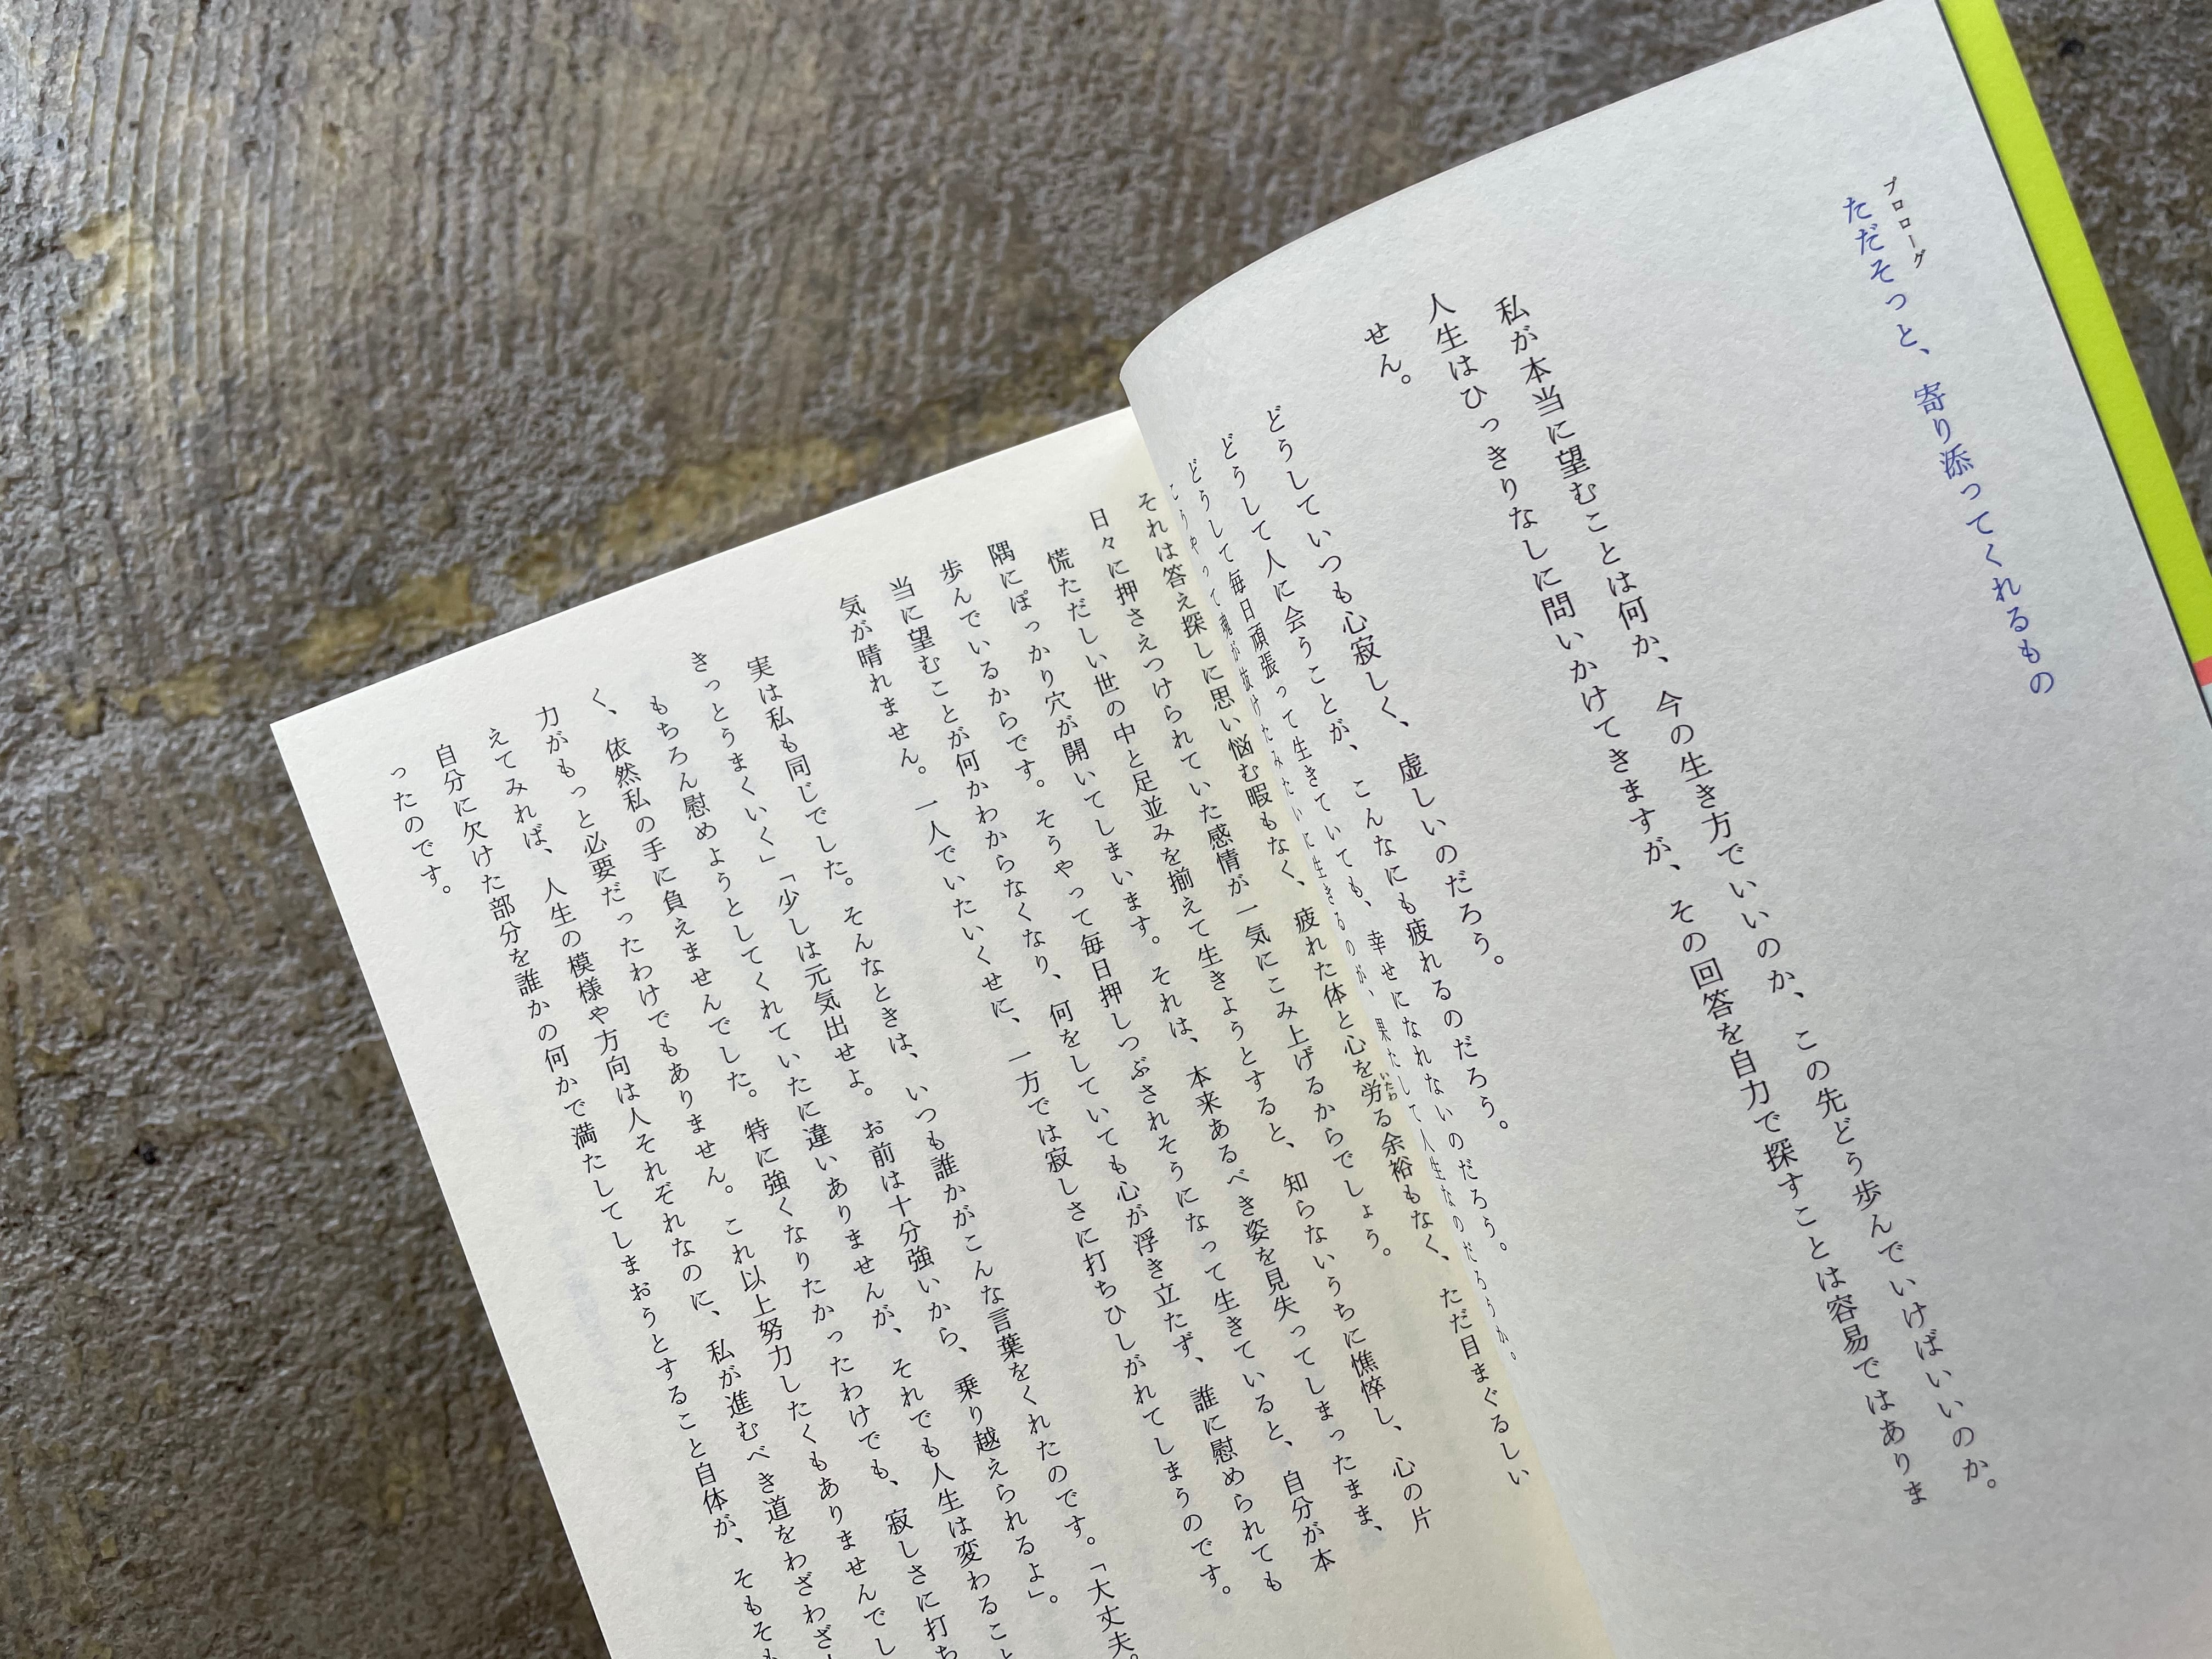 プロローグ
ただそっと、寄り添ってくれるもの
私が本当に望むことは何か、今の生き方でいいのか、この先どう歩んでいけばいいのか。
人生はひっきりなしに問いかけてきますが、その回答を自力で探すことは容易ではありま
せん。
どうしていつも心寂しく、虚しいのだろう。
どうして人に会うことが、こんなにも疲れるのだろう。
どうして毎日頑張って生きていても、幸せになれないのだろう。
こうやって魂が抜けたみたいに生きるのが、果たして人生なのだろうか。
それは答え探しに思い悩む暇もなく、疲れた体と心を労る余裕もなく、ただ目まぐるしい
日々に押さえつけられていた感情が一気にこみ上げるからでしょう。
慌ただしい世の中と足並みを揃えて生きようとすると、知らないうちに憔悴し、心の片
隅にぽっかり穴が開いてしまいます。それは、本来あるべき姿を見失ってしまったまま、
歩んでいるからです。そうやって毎日押しつぶされそうになって生きていると、自分が本
当に望むことが何かわからなくなり、何をしていても心が浮き立たず、誰に慰められても
気が晴れません。一人でいたいくせに、一方では寂しさに打ちひしがれてしまうのです。
実は私も同じでした。そんなときは、いつも誰かがこんな言葉をくれたのです。「大丈夫。
きっとうまくいく」「少しは元気出せよ。お前は十分強いから、乗り越えられるよ」。
もちろん慰めようとしてくれていたに違いありませんが、それでも人生は変わること
く、依然私の手に負えませんでした。特に強くなりたかったわけでも、寂しさに打ち
力がもっと必要だったわけでもありません。これ以上努力したくもありませんでし
えてみれば、人生の模様や方向は人それぞれなのに、私が進むべき道をわざわざ
自分に欠けた部分を誰かの何かで満たしてしまおうとすること自体が、そもそも
ったのです。